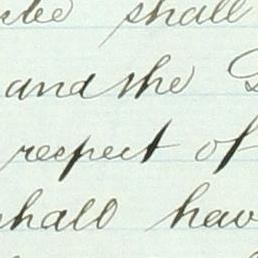 shall
and the
respect of
shall hav